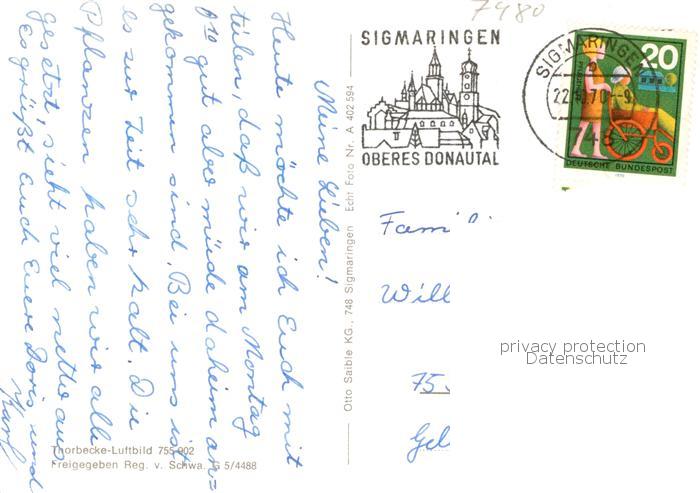 7480
SIGMARINGEN
OBERES DONAUTAL
SIGMARINGEN
22.10.70-9
748
20
DEUTSCHE BUNDESPOST
Meine Lieben!
Heute möchte ich Euch mit
teilen, daß wir am Montag
gut aber müde daheim an=
gekommen sind. Bei uns ist
es zur Zeit sehr kalt. Die
Pflanzen haben wir alle
gesetzt, sieht viel netter aus
Es grüßt Euch Euere Doris und
Otto Saible KG., 748 Sigmaringen Echt Foto Nr. A 402594
Fami
Will
75
Gel
privacy protection
Datenschutz
Thorbecke-Luftbild 755 902
Freigegeben Reg. v. Schwa. G 5/4488